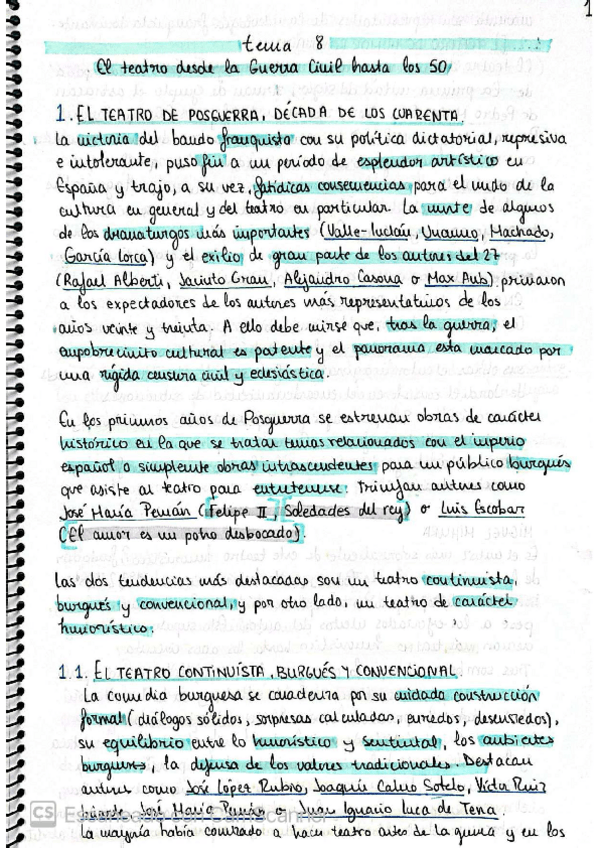 1
tema 8
El teatro desde la Guerra Civil hasta los 50
1. EL TEATRO DE POSGUERRA, DÉCADA DE LOS CUARENTA
La victoria del bando franquista con su política dictatorial, represiva
e intolerante, puso fin a un período de esplendor artístico en
España y trajo, a su vez, fatídicas consecuencias para el mundo de la
cultura en general y del teatro en particular. La muerte de algunos
de los dramaturgos más importantes (Valle-Inclán, Unamuno, Machado,
García Lorca) y el exilio de gran parte de los autores del 27
(Rafael Alberti, Jacinto Grau, Alejandro Casona o Max Aub) privaron
a los expectadores de los autores más representativos de los
años veinte y treinta. A ello debe unirse que, tras la guerra, el
empobrecimiento cultural es patente y el panorama esta marcado por
una rígida censura civil y eclesiástica.
En los primeros años de Posguerra se estrenan obras de carácter
histórico en la que se tratan temas relacionados con el imperio
español o simplemente obras intrascendentes para un público burgués
que asiste al teatro para entretenerse. Triunfan autores como
José María Pemán (Felipe II, Soledades del rey) o Luis Escobar
(El amor es un potro desbocado).
Las dos tendencias más destacadas son un teatro continuista,
burgués y convencional, y por otro lado, un teatro de carácter
humorístico.
1.1. EL TEATRO CONTINUÍSTA, BURGUÉS Y CONVENCIONAL.
La comedia burguesa se caracteriza por su cuidada construcción
formal (diálogos sólidos, sorpresas calculadas, enredos, desenredos),
su equilibrio entre lo humorístico y sentimental, los ambientes
burgueses, la defensa de los valores tradicionales. Destacan
autores como José López Rubio, Joaquín Calvo Sotelo, Víctor Ruiz
Iriarte, José María Pemán o Juan Ignacio Luca de Tena.
CS Escaneado con CamScanner
La mayoría había comenzado a hacer teatro antes de la guerra y en los